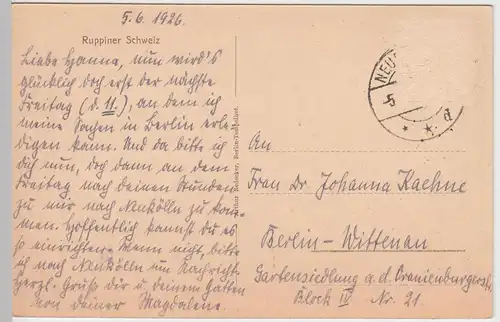 5.6.1926.
Ruppiner Schweiz
Liebe Hanna, nun wird's
glücklich doch erst der nächste
Freitag (d. 11.), an dem ich
meine Sachen in Berlin erle-
digen kann. Und da bitte ich
dich nun, doch dann an dem
Freitag nach deinen Stunden
zu mir nach Neukölln zu kom-
men. Hoffentlich kannst du es
so einrichten. Wenn nicht, bitte
ich nach Neukölln um Nachricht.
Herzl. Grüße dir u. deinem Gatten
von deiner Magdalene.
NEU
5
d
An
Frau Dr. Johanna Kaehne
Berlin-Wittenau
Gartensiedlung a. d. Oranienburgerstr.
Block IV Nr. 21.